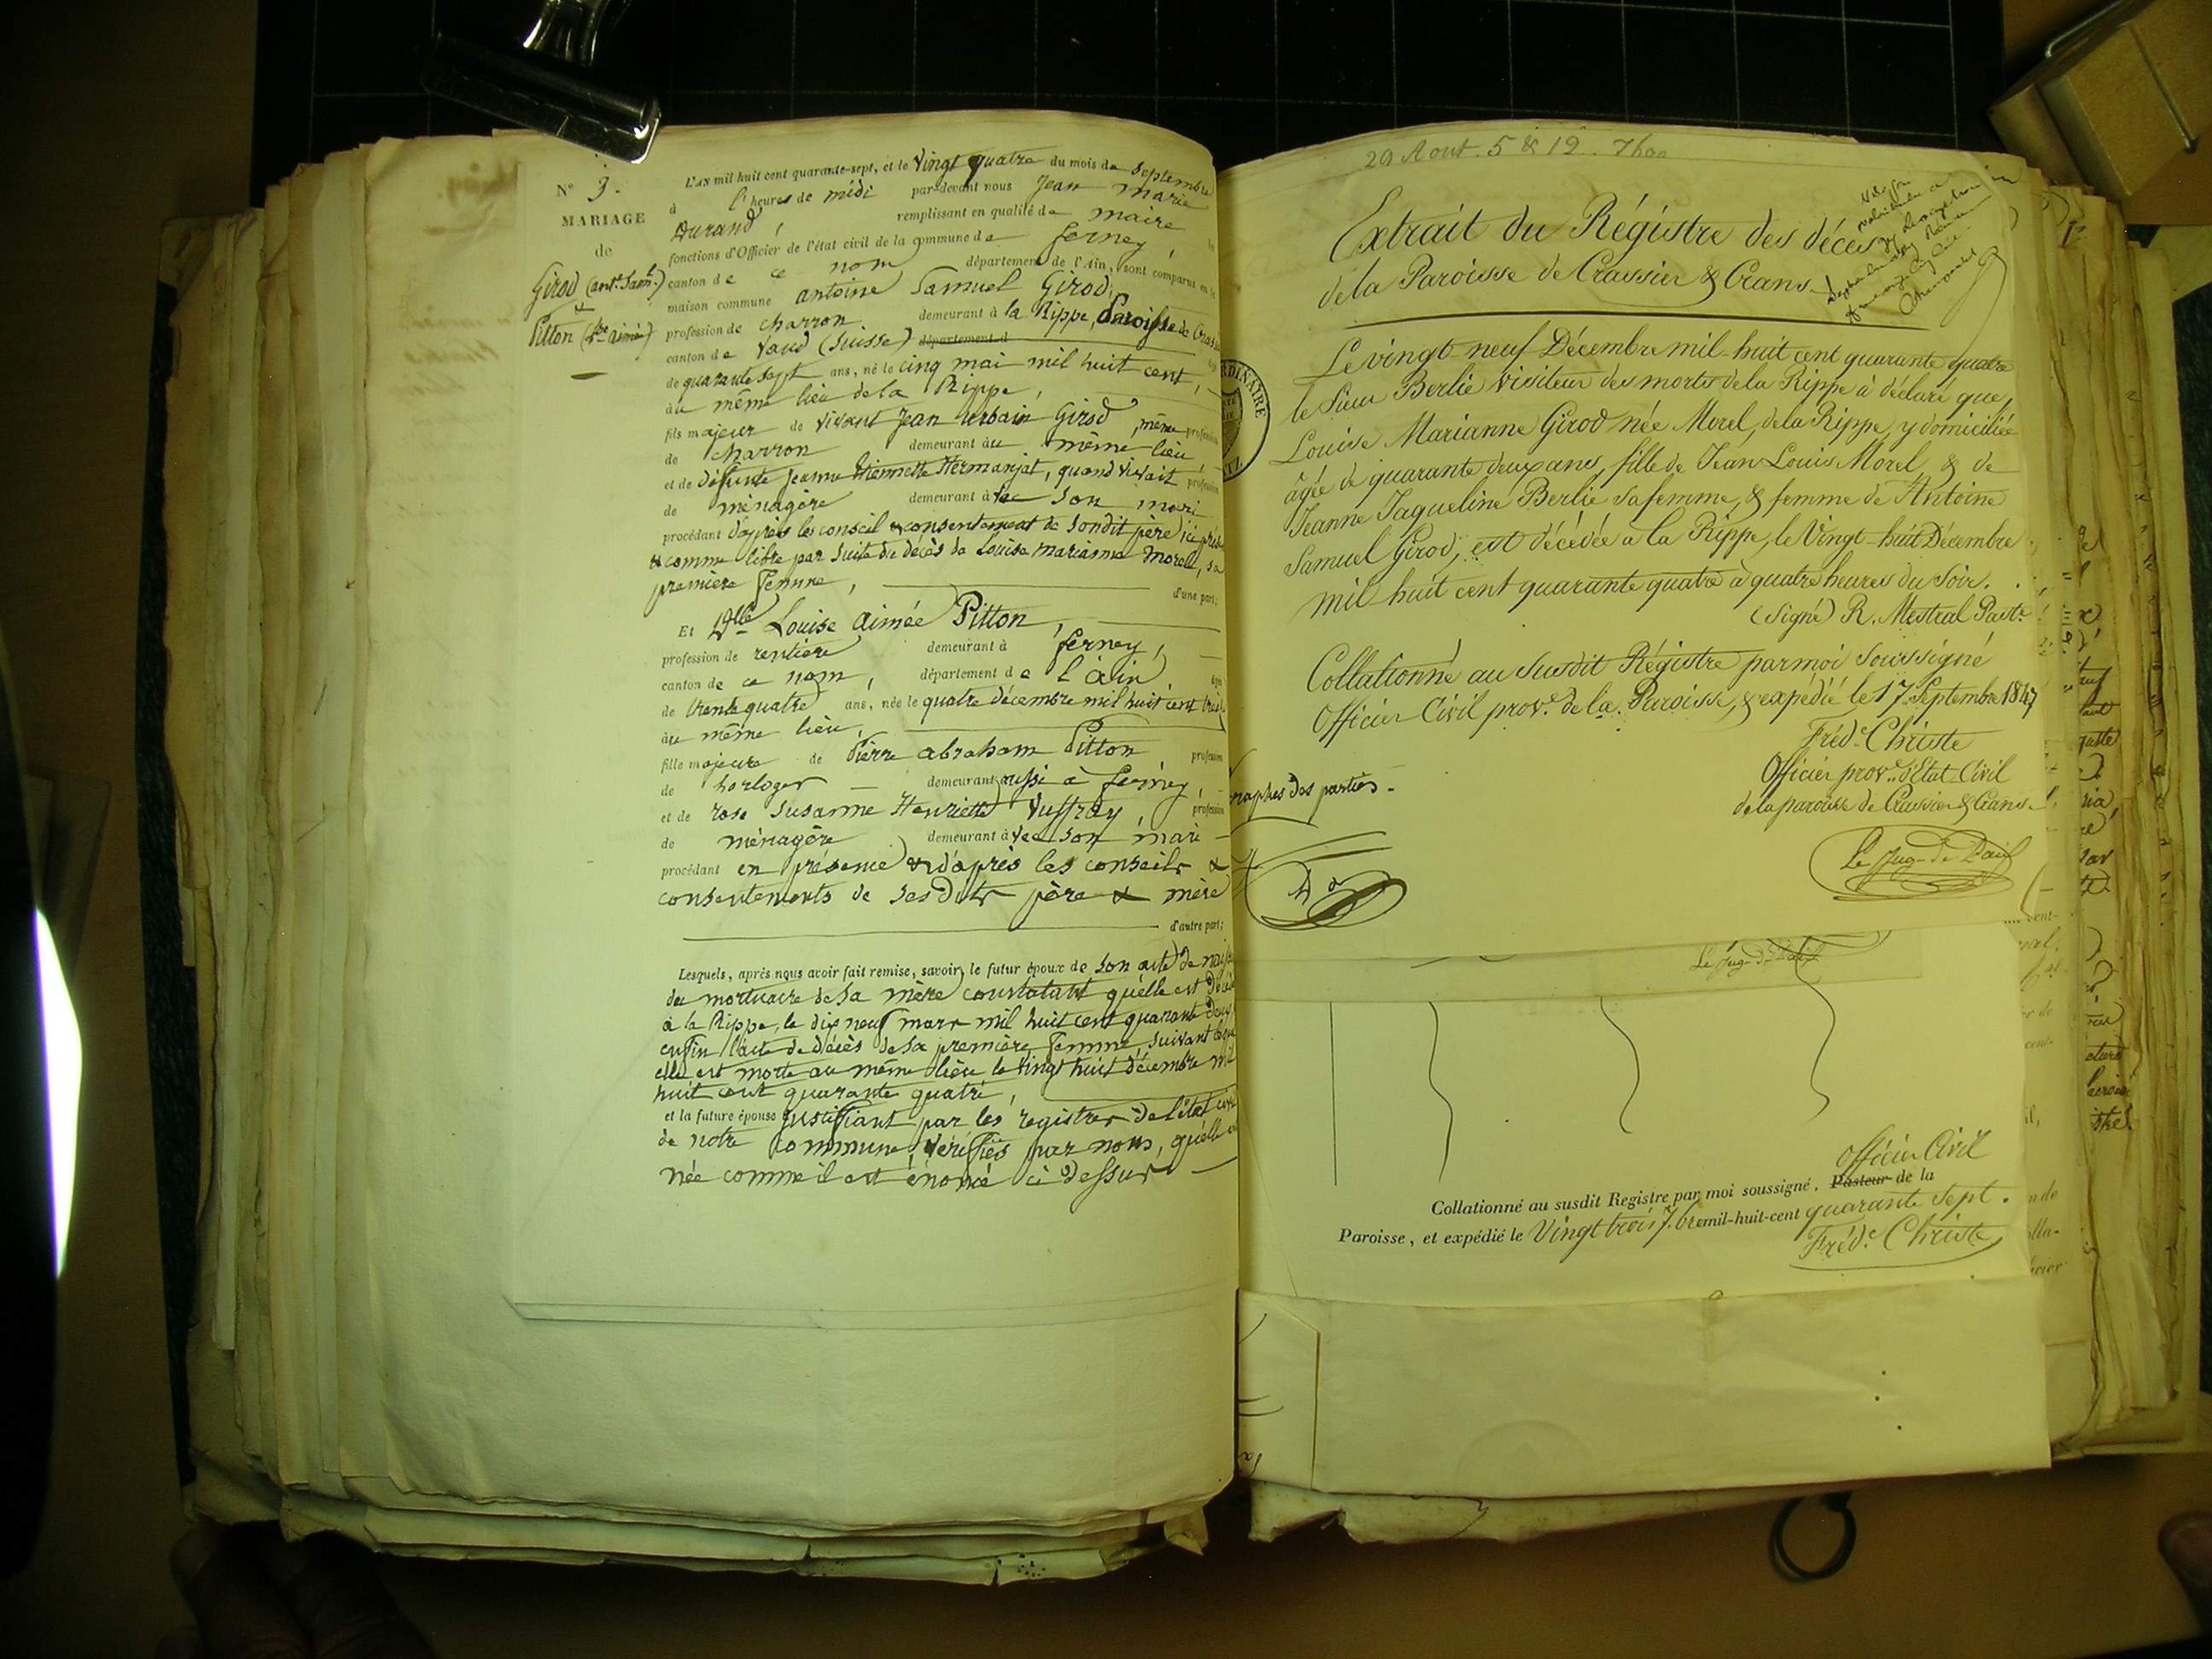 N° 3.
MARIAGE
de
Girod (ant.e Sam.l)
&
Pitton (L.se aimée)
L'AN mil huit cent quarante-sept, et le vingt quatre du mois de Septembre
à l'heures de midi par-devant nous Jean Marie
Durand, remplissant en qualité de maire
fonctions d'Officier de l'état civil de la commune de ferney,
canton de ce nom département de l'Ain, sont comparus en la
maison commune antoine Samuel Girod,
profession de charron demeurant à la Rippe, Paroisse de
canton de Vaud (Suisse) département d
de quarante sept ans, né le cinq mai mil huit cent,
au même lieu de la Rippe,
fils majeur de vivant Jean Urbain Girod, même profession
de charron demeurant au même lieu
et de défunte Jeanne Etiennette Hermanjat, quand vivait profession
de ménagère demeurant avec son mari
procédant d'après les conseil & consentement de sondit père ici
& comme libre par suite du décès de Louise marianne Morel, sa
première femme, d'une part;
Et Dlle Louise Aimée Pitton,
profession de rentière demeurant à ferney,
canton de ce nom, département de l'ain
de trente quatre ans, née le quatre décembre mil huit cent
au même lieu,
fille majeure de Pierre abraham Pitton profession
de horloger demeurant aussi à ferney,
et de rose Susanne Henriette Vuffray profession
de ménagère demeurant avec son mari
procédant en présence & d'après les conseils &
consentements de sesdits père & mère
d'autre part;
Lesquels, après nous avoir fait remise, savoir, le futur époux de son acte de
du mortuaire de sa mère constatant qu'elle est
à la Rippe, le dix neuf mars mil huit cent quarante deux
enfin l'acte de décès de sa première femme, suivant
elle est morte au même lieu le vingt huit décembre mil
huit cent quarante quatre,
et la future épouse justifiant par les registres de l'état
de notre commune, vérifiés par nous, qu'elle
née comme il est énoncé ci dessus
29 Aout. 5 & 12. 7bre
Extrait du Régistre des décès
de la Paroisse de Crassier & Crans
Le vingt-neuf Décembre mil-huit cent quarante quatre
le Sieur Berlie visiteur des morts de la Rippe à déclaré que,
Louise Marianne Girod née Morel, de la Rippe, y domiciliée
âgée de quarante deux ans, fille de Jean-Louis Morel, & de
Jeanne Jaqueline Berlie sa femme, & femme de Antoine
Samuel Girod, est décédée à la Rippe, le Vingt-huit Décembre
mil-huit cent quarante quatre à quatre heures du Soir.
(Signé) R. Mestral Past.r
Collationné au susdit Régistre par moi soussigné
Officier Civil prov.e de la Paroisse, & expédié le 17 Septembre 1847
Fréd.c Christe
Officier prov.e d'Etat-Civil
de la paroisse de Crassier & Crans
raphes des parties.
Le Jug de Paix
Officier Civil
Collationné au susdit Registre par moi soussigné, Pasteur de la
Paroisse, et expédié le Vingt trois 7.bre mil-huit-cent quarante sept.
Fréd.c Christe